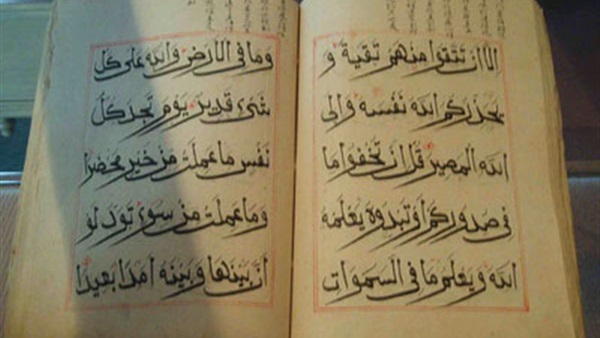 الا ان تتقوا منهم تقية و
يحذركم الله نفسه والى
الله المصير قل ان تخفوا ما
فى صدوركم او تبدوه يعلمه
الله ويعلم ما فى السموات
وما فى الارض والله على كل
شىء قدير يوم تجد كل
نفس ما عملت من خير محضرا
وما عملت من سوء تود لو
ان بينها وبينه امدا بعيدا